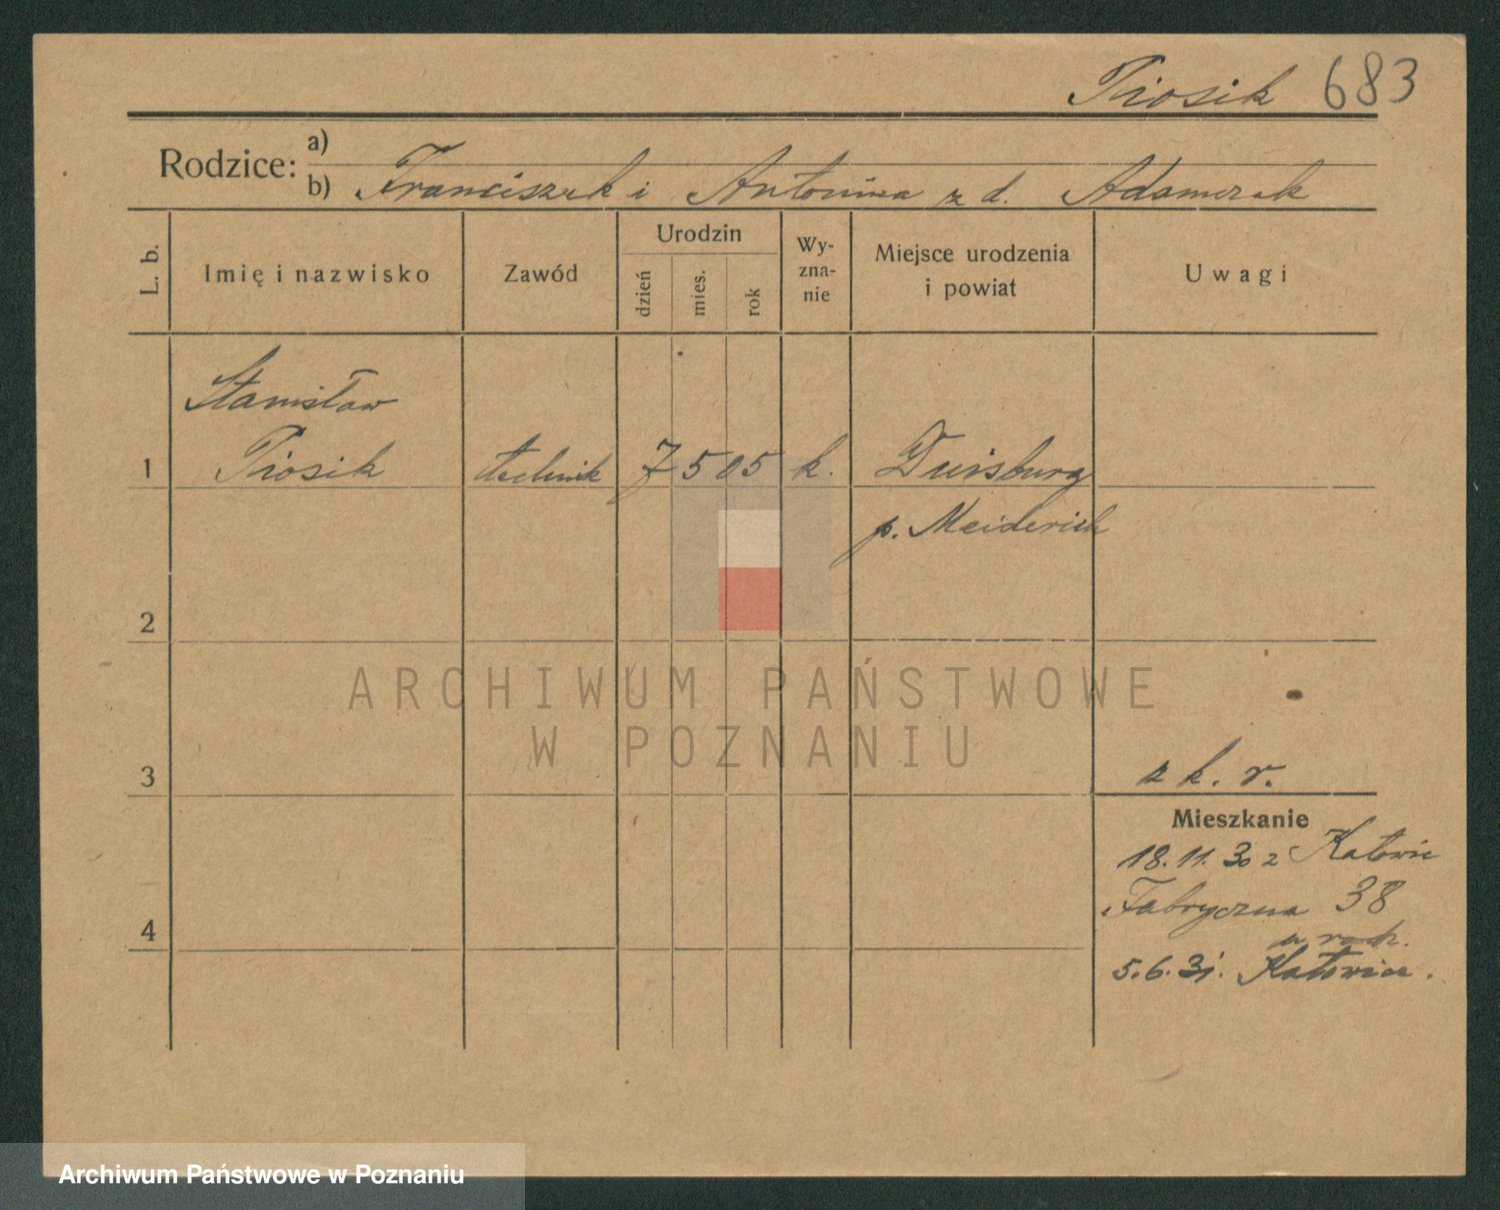 Piosik 683
Rodzice: a)
b) Franciszek i Antonina z d. Adamczak
L. b. Imię i nazwisko Zawód Urodzin dzień mies. rok Wy-zna-nie Miejsce urodzenia i powiat Uwagi
Stanisław
1 Piosik technik 7 5 05 k. Duisburg
p. Meiderich
2
ARCHIWUM PAŃSTWOWE
W POZNANIU
3 z k. r.
Mieszkanie
18. 11. 30 z Katowic
Fabryczna 38
4 u rodz.
5. 6. 31. Katowice.
Archiwum Państwowe w Poznaniu